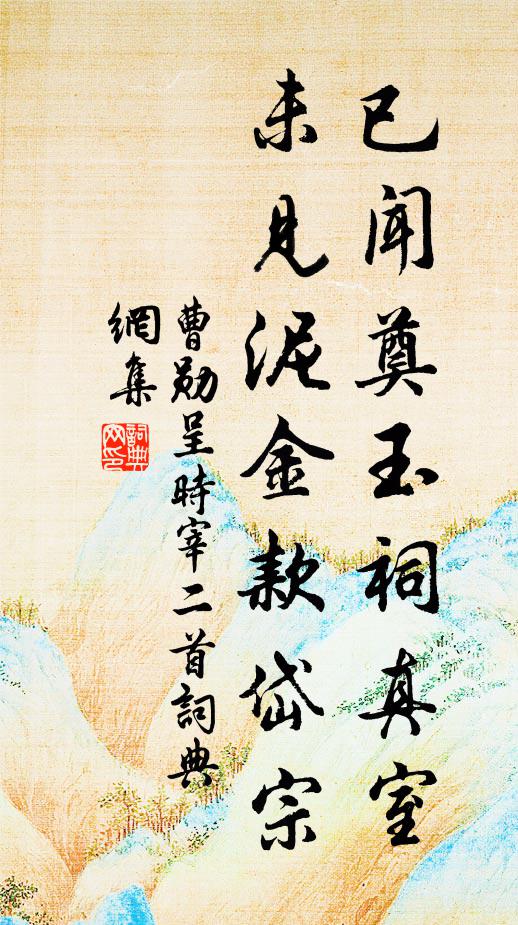 已聞奠玉祠真室
未見泥金款岱宗
曹勛呈時宰二首詞典
網集
詞典
网印